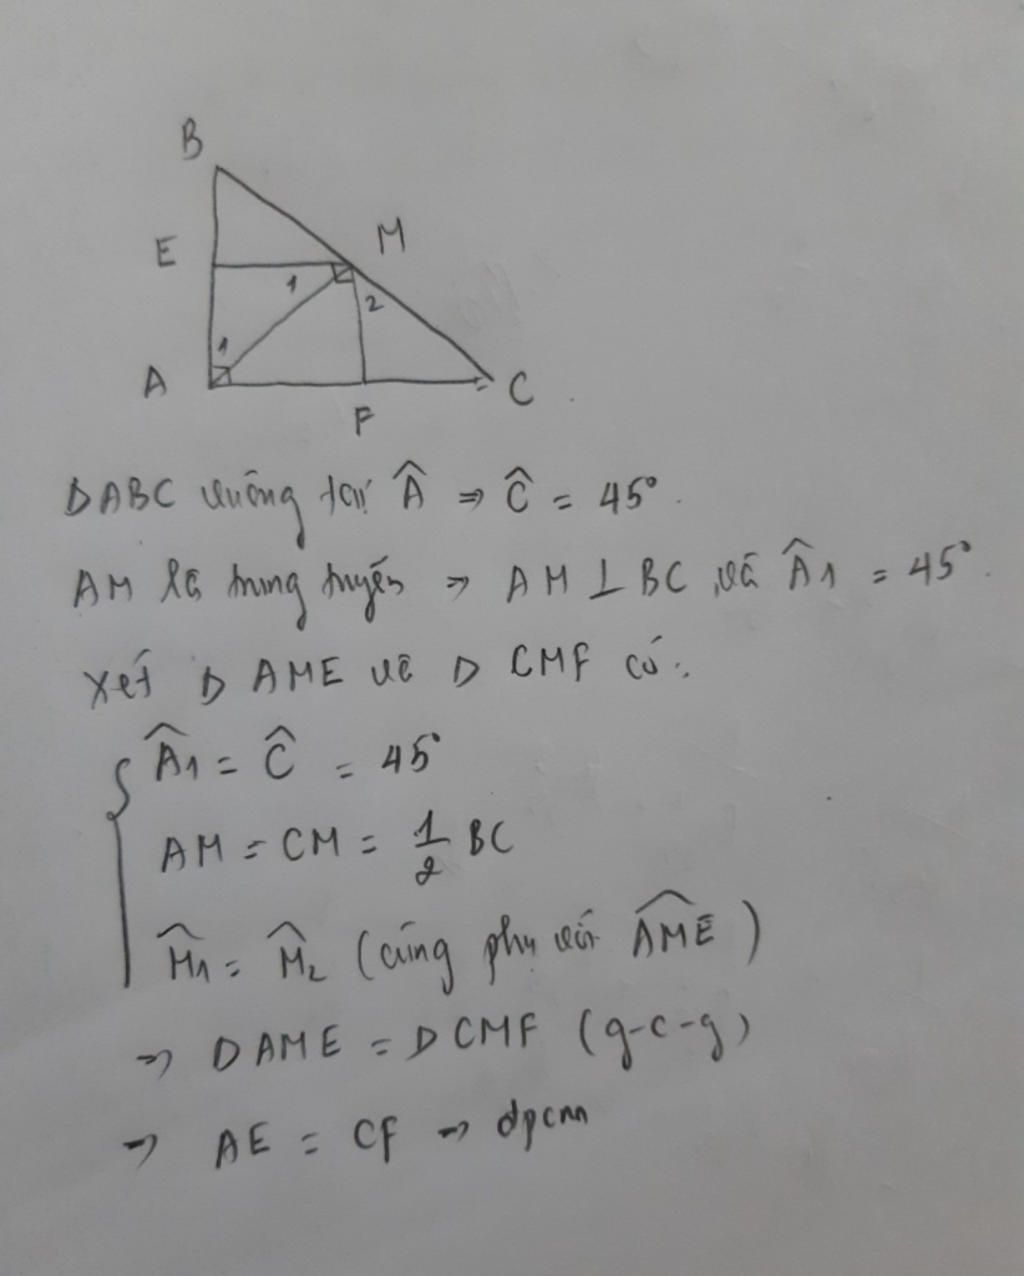 B
E
M
1
2
1
A
C
F
DABC vuông tại Â ⇒ Ĉ = 45°.
AM là trung tuyến ⇒ AM ⊥ BC và Â1 = 45°.
Xét D AME và D CMF có:
Â1 = Ĉ = 45°
AM = CM = 1/2 BC
M̂1 = M̂2 (cùng phụ với AM̂E)
⇒ DAME = DCMF (g-c-g)
⇒ AE = CF ⇒ đpcm